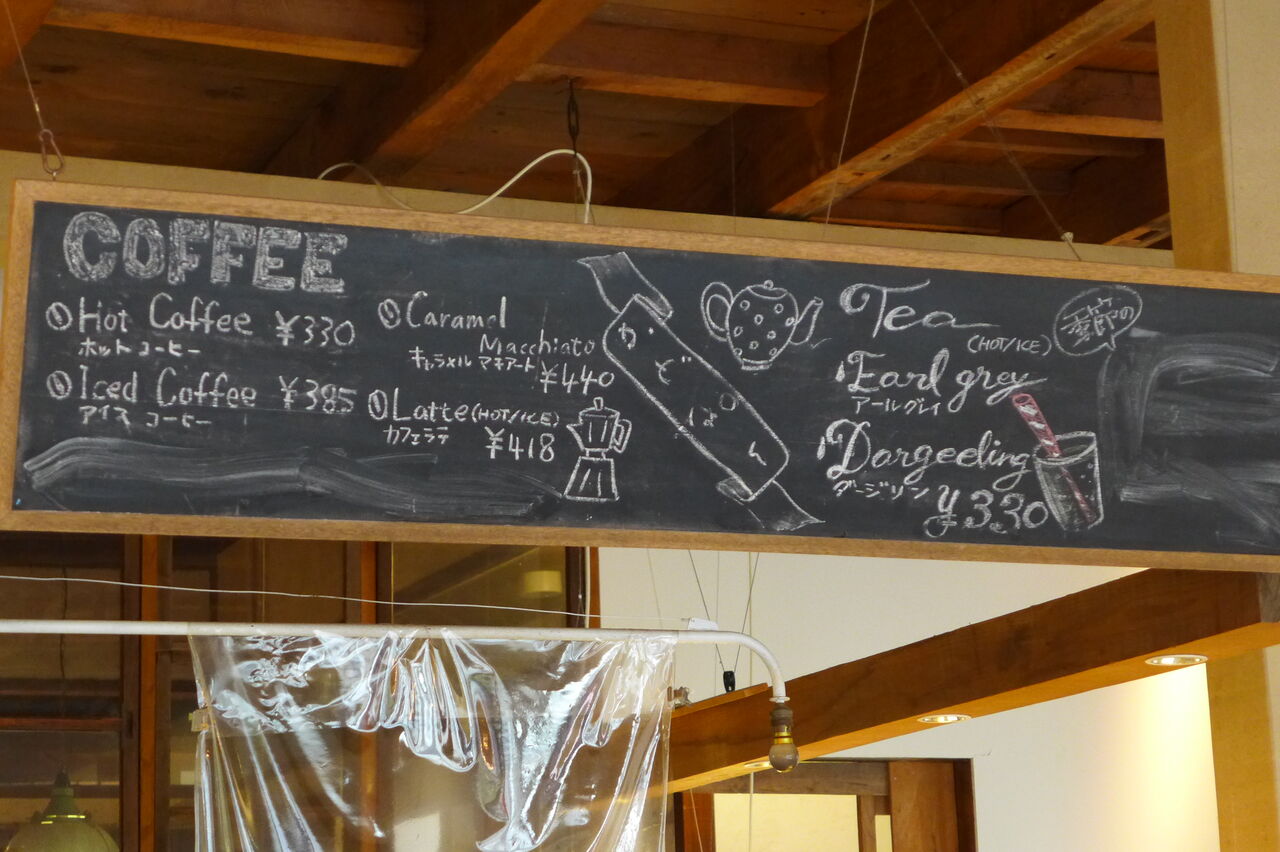 COFFEE
Hot Coffee ¥330
ホットコーヒー
Iced Coffee ¥385
アイスコーヒー
Caramel
Macchiato
キャラメルマキアート ¥440
Latte (HOT/ICE)
カフェラテ ¥418
かどぱん
Tea
(HOT/ICE)
Earl grey
アールグレイ
Dargeeling
ダージリン ¥330